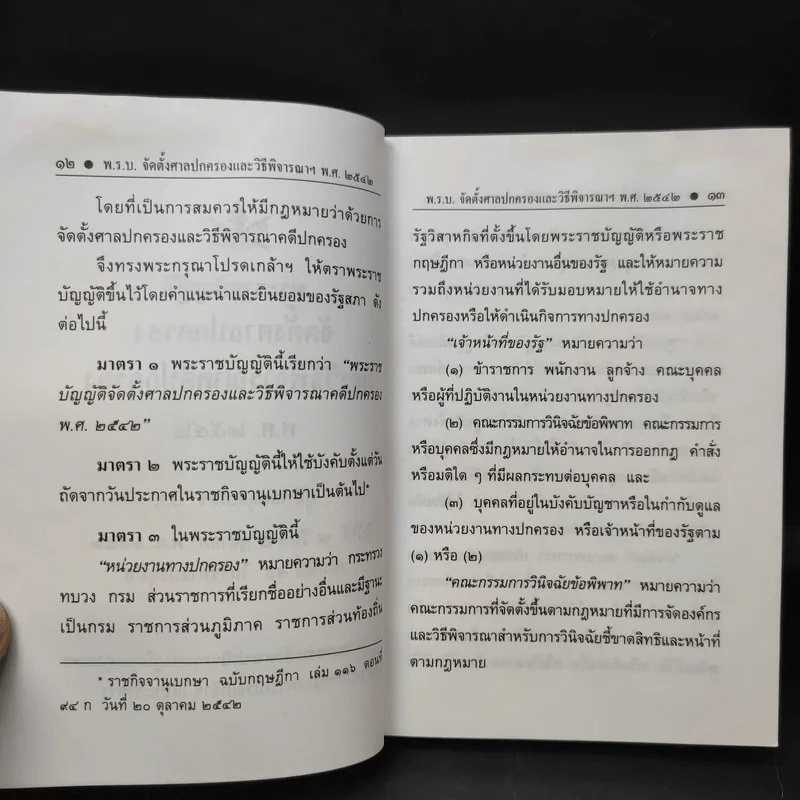 ๑๒ ● พ.ร.บ. จัดตั้งศาลปกครองและวิธีพิจารณาฯ พ.ศ. ๒๕๔๒
โดยที่เป็นการสมควรให้มีกฎหมายว่าด้วยการ
จัดตั้งศาลปกครองและวิธีพิจารณาคดีปกครอง
จึงทรงพระกรุณาโปรดเกล้าฯ ให้ตราพระราช
บัญญัติขึ้นไว้โดยคำแนะนำและยินยอมของรัฐสภา ดัง
ต่อไปนี้
มาตรา ๑ พระราชบัญญัตินี้เรียกว่า “พระราช
บัญญัติจัดตั้งศาลปกครองและวิธีพิจารณาคดีปกครอง
พ.ศ. ๒๕๔๒”
มาตรา ๒ พระราชบัญญัตินี้ให้ใช้บังคับตั้งแต่วัน
ถัดจากวันประกาศในราชกิจจานุเบกษาเป็นต้นไป*
มาตรา ๓ ในพระราชบัญญัตินี้
“หน่วยงานทางปกครอง” หมายความว่า กระทรวง
ทบวง กรม ส่วนราชการที่เรียกชื่ออย่างอื่นและมีฐานะ
เป็นกรม ราชการส่วนภูมิภาค ราชการส่วนท้องถิ่น
* ราชกิจจานุเบกษา ฉบับกฤษฎีกา เล่ม ๑๑๖ ตอนที่
๙๔ ก วันที่ ๒๐ ตุลาคม ๒๕๔๒
พ.ร.บ. จัดตั้งศาลปกครองและวิธีพิจารณาฯ พ.ศ. ๒๕๔๒ ● ๑๓
รัฐวิสาหกิจที่ตั้งขึ้นโดยพระราชบัญญัติหรือพระราช
กฤษฎีกา หรือหน่วยงานอื่นของรัฐ และให้หมายความ
รวมถึงหน่วยงานที่ได้รับมอบหมายให้ใช้อำนาจทาง
ปกครองหรือให้ดำเนินกิจการทางปกครอง
“เจ้าหน้าที่ของรัฐ” หมายความว่า
(๑) ข้าราชการ พนักงาน ลูกจ้าง คณะบุคคล
หรือผู้ที่ปฏิบัติงานในหน่วยงานทางปกครอง
(๒) คณะกรรมการวินิจฉัยข้อพิพาท คณะกรรมการ
หรือบุคคลซึ่งมีกฎหมายให้อำนาจในการออกกฎ คำสั่ง
หรือมติใด ๆ ที่มีผลกระทบต่อบุคคล และ
(๓) บุคคลที่อยู่ในบังคับบัญชาหรือในกำกับดูแล
ของหน่วยงานทางปกครอง หรือเจ้าหน้าที่ของรัฐตาม
(๑) หรือ (๒)
“คณะกรรมการวินิจฉัยข้อพิพาท” หมายความว่า
คณะกรรมการที่จัดตั้งขึ้นตามกฎหมายที่มีการจัดองค์กร
และวิธีพิจารณาสำหรับการวินิจฉัยชี้ขาดสิทธิและหน้าที่
ตามกฎหมาย